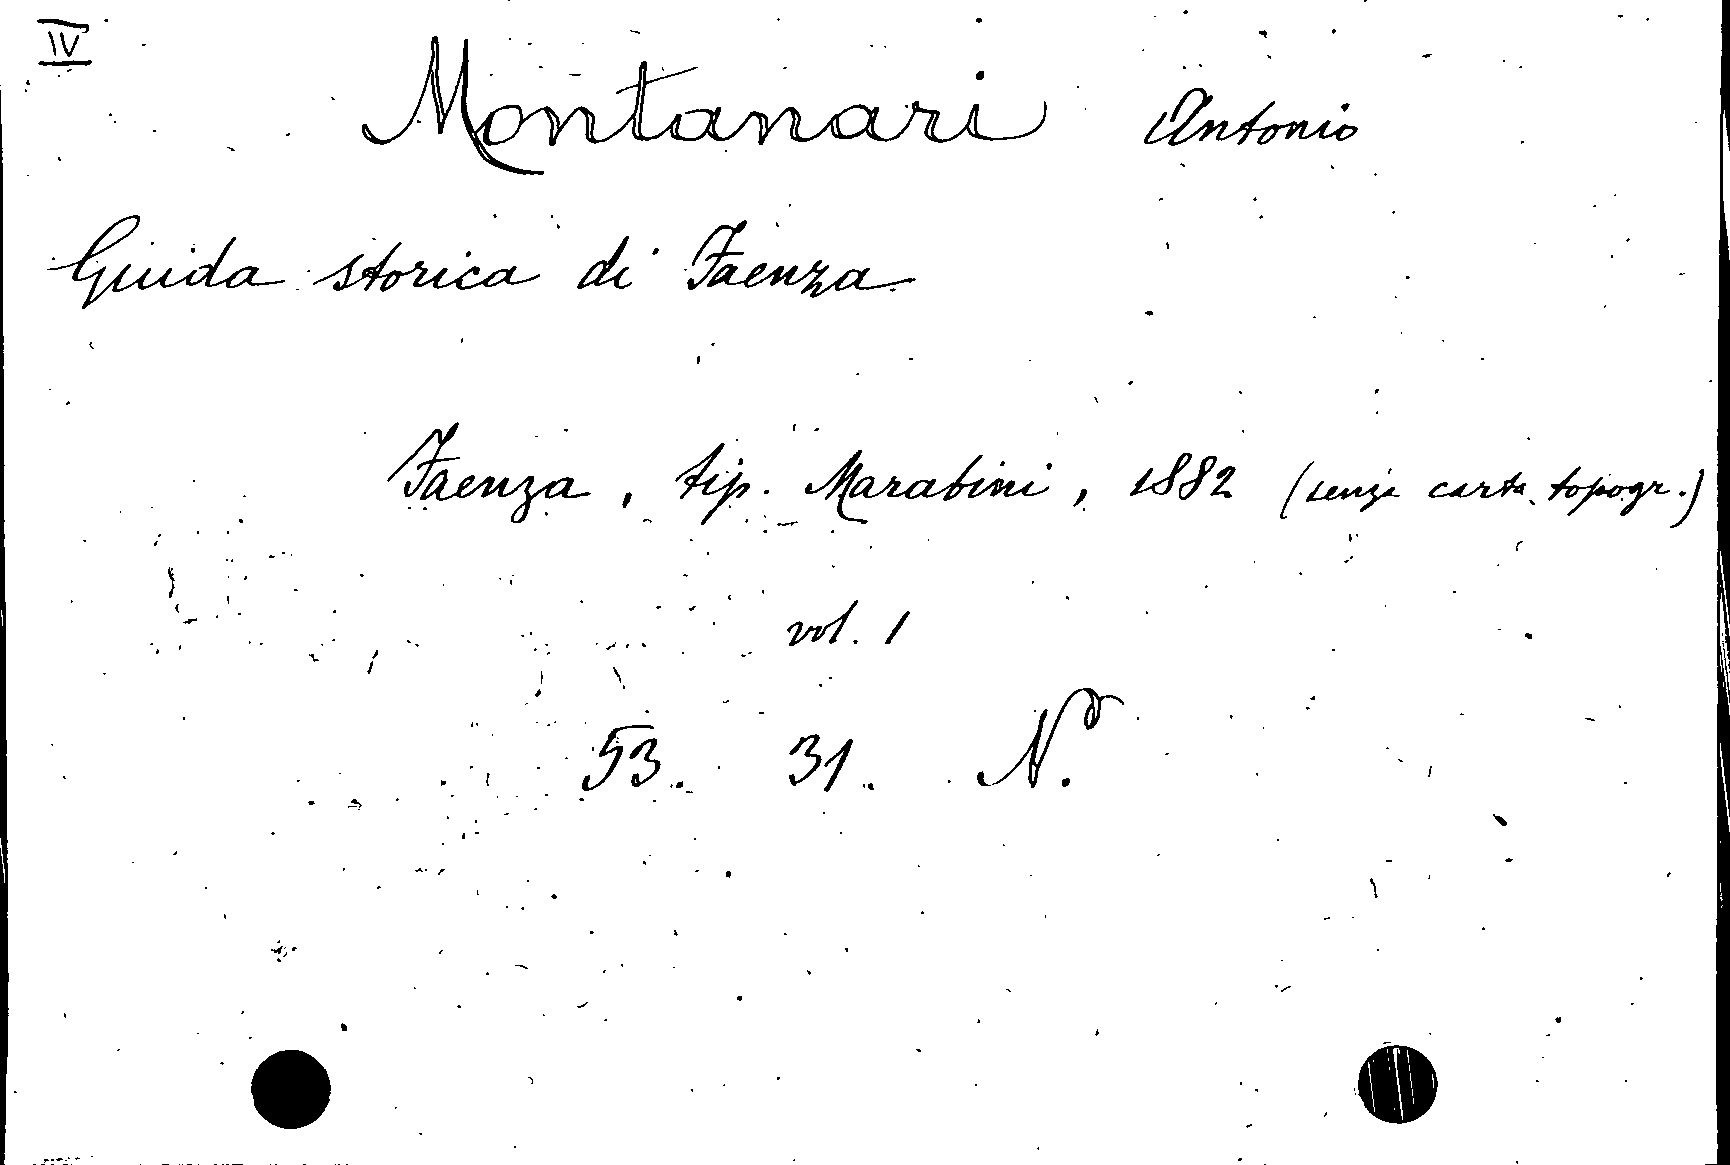 IV
Montanari Antonio
Guida storica di Faenza
Faenza, tip. Marabini, 1882 (senza carta topogr.)
vol. 1
53. 31. N.